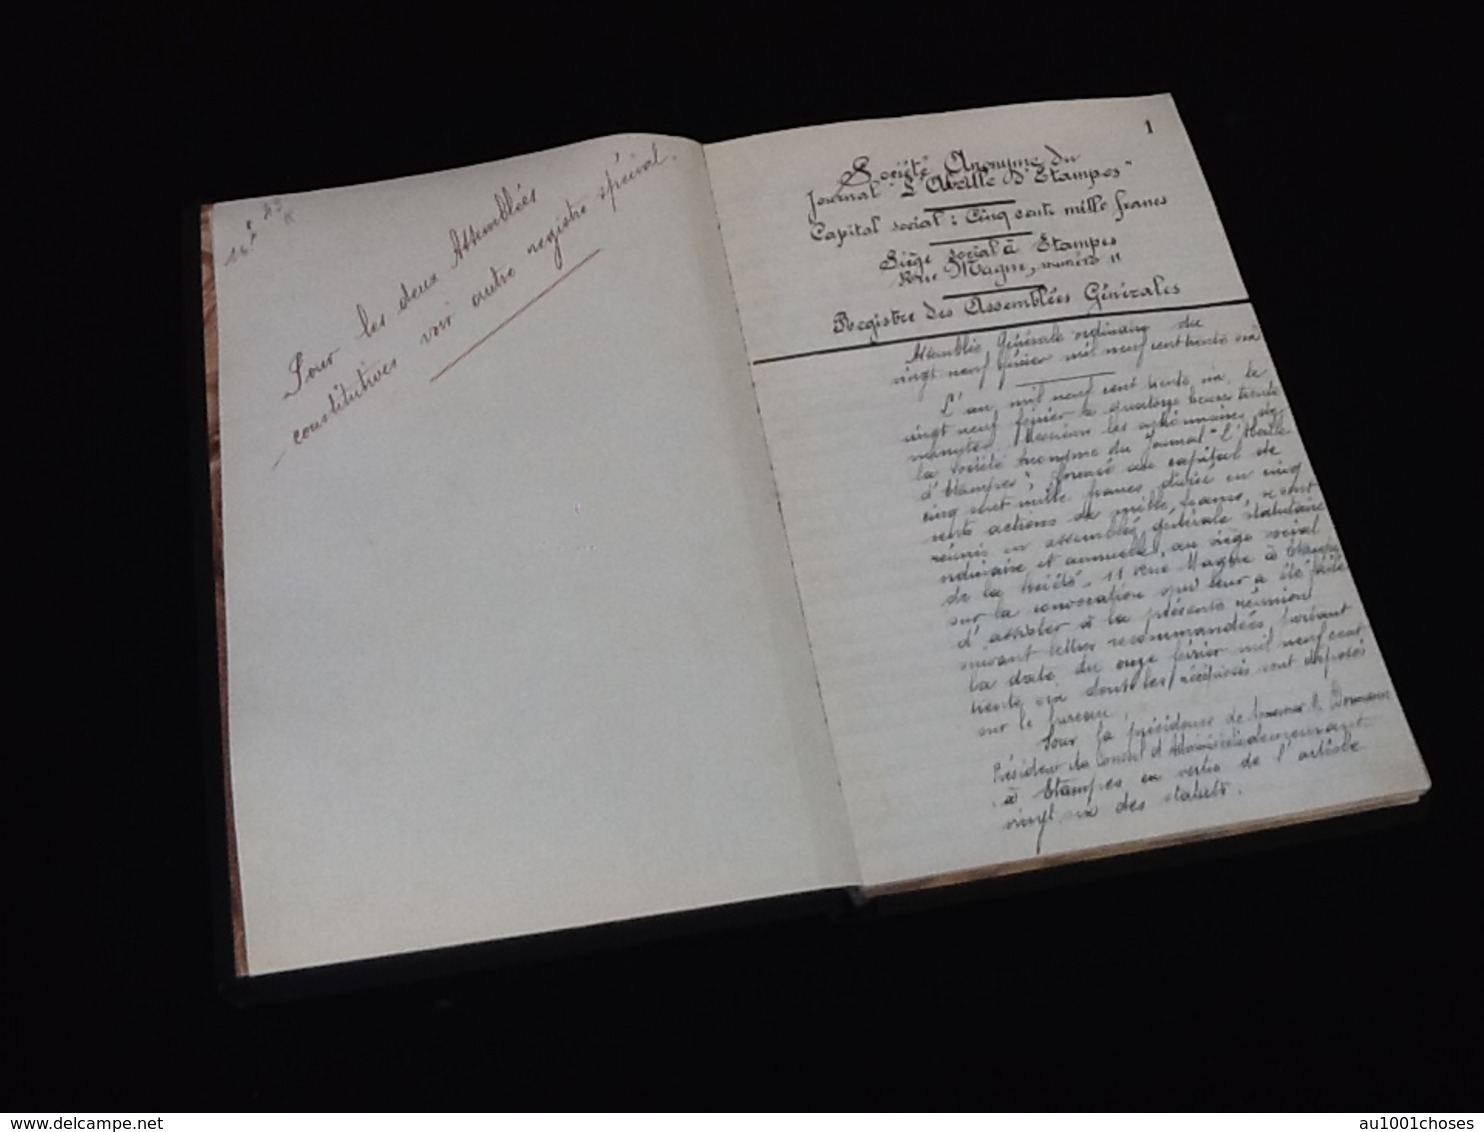 Pour les deux Assemblées
constitutives voir autre registre spécial.
1
Société Anonyme du
Journal "L'Abeille d'Etampes"
Capital social : Cinq cent mille francs
Siège social à Etampes
Rue Magne, numéro 11
Registre des Assemblées Générales
Assemblée Générale ordinaire du
vingt neuf février mil neuf cent trente six
L'an mil neuf cent trente six, le
vingt neuf février à quatorze heures trente
minutes, Messieurs les actionnaires de
la Société Anonyme du Journal "L'Abeille
d'Etampes", au capital de
cinq cent mille francs divisé en cinq
cents actions de mille francs, se sont
réunis en assemblée générale statutaire
ordinaire et annuelle, au siège social
de la Société, 11 rue Magne à Etampes
sur la convocation qui leur a été faite
d'assister à la présente réunion
suivant lettres recommandées portant
la date du onze février mil neuf cent
trente six dont les récépissés sont déposés
sur le bureau.
Sous la présidence de
Président du Conseil d'Administration demeurant
à Etampes en vertu de l'article
vingt six des statuts.
delcampe.net
au1001choses